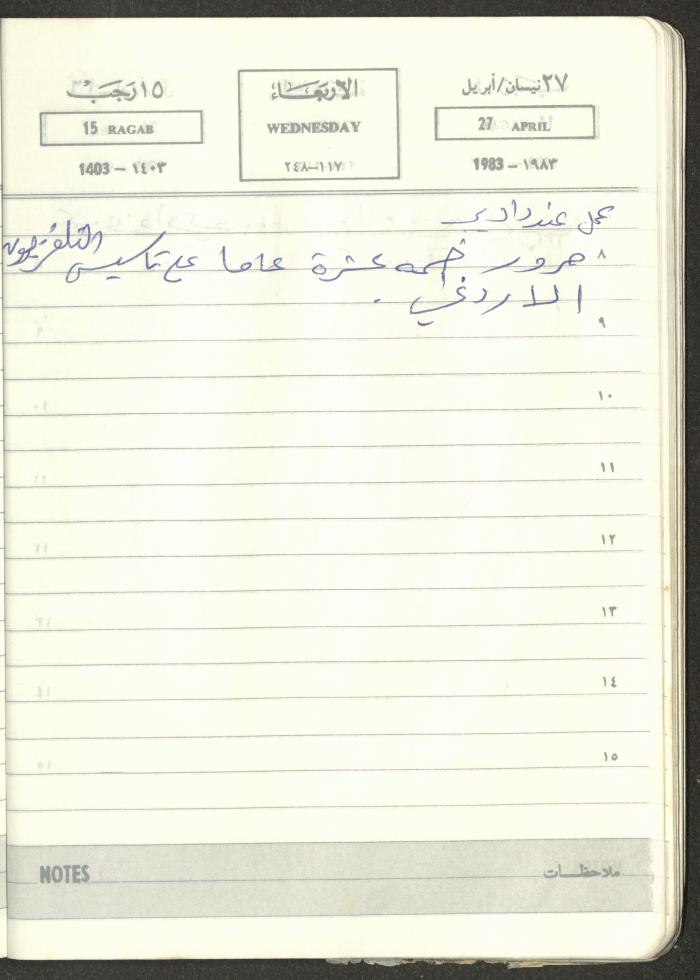 ٢٧ نيسان/أبريل
27 APRIL
1983 – ١٩٨٣
الأربعاء
WEDNESDAY
١١٧–٢٤٨
١٥ رجب
15 RAGAB
1403 – ١٤٠٣
عمل عند
٨ مرور خمسه عشرة عاما على تاسيس التلفزيون
الاردني .
٩
١٠
١١
١٢
١٣
١٤
١٥
NOTES ملاحظات